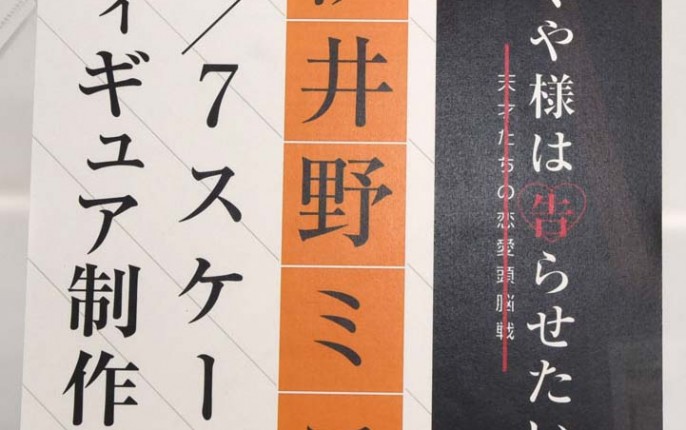 や様は告らせたい
天才たちの恋愛頭脳戦
井野ミ
/7スケー
ィギュア制作